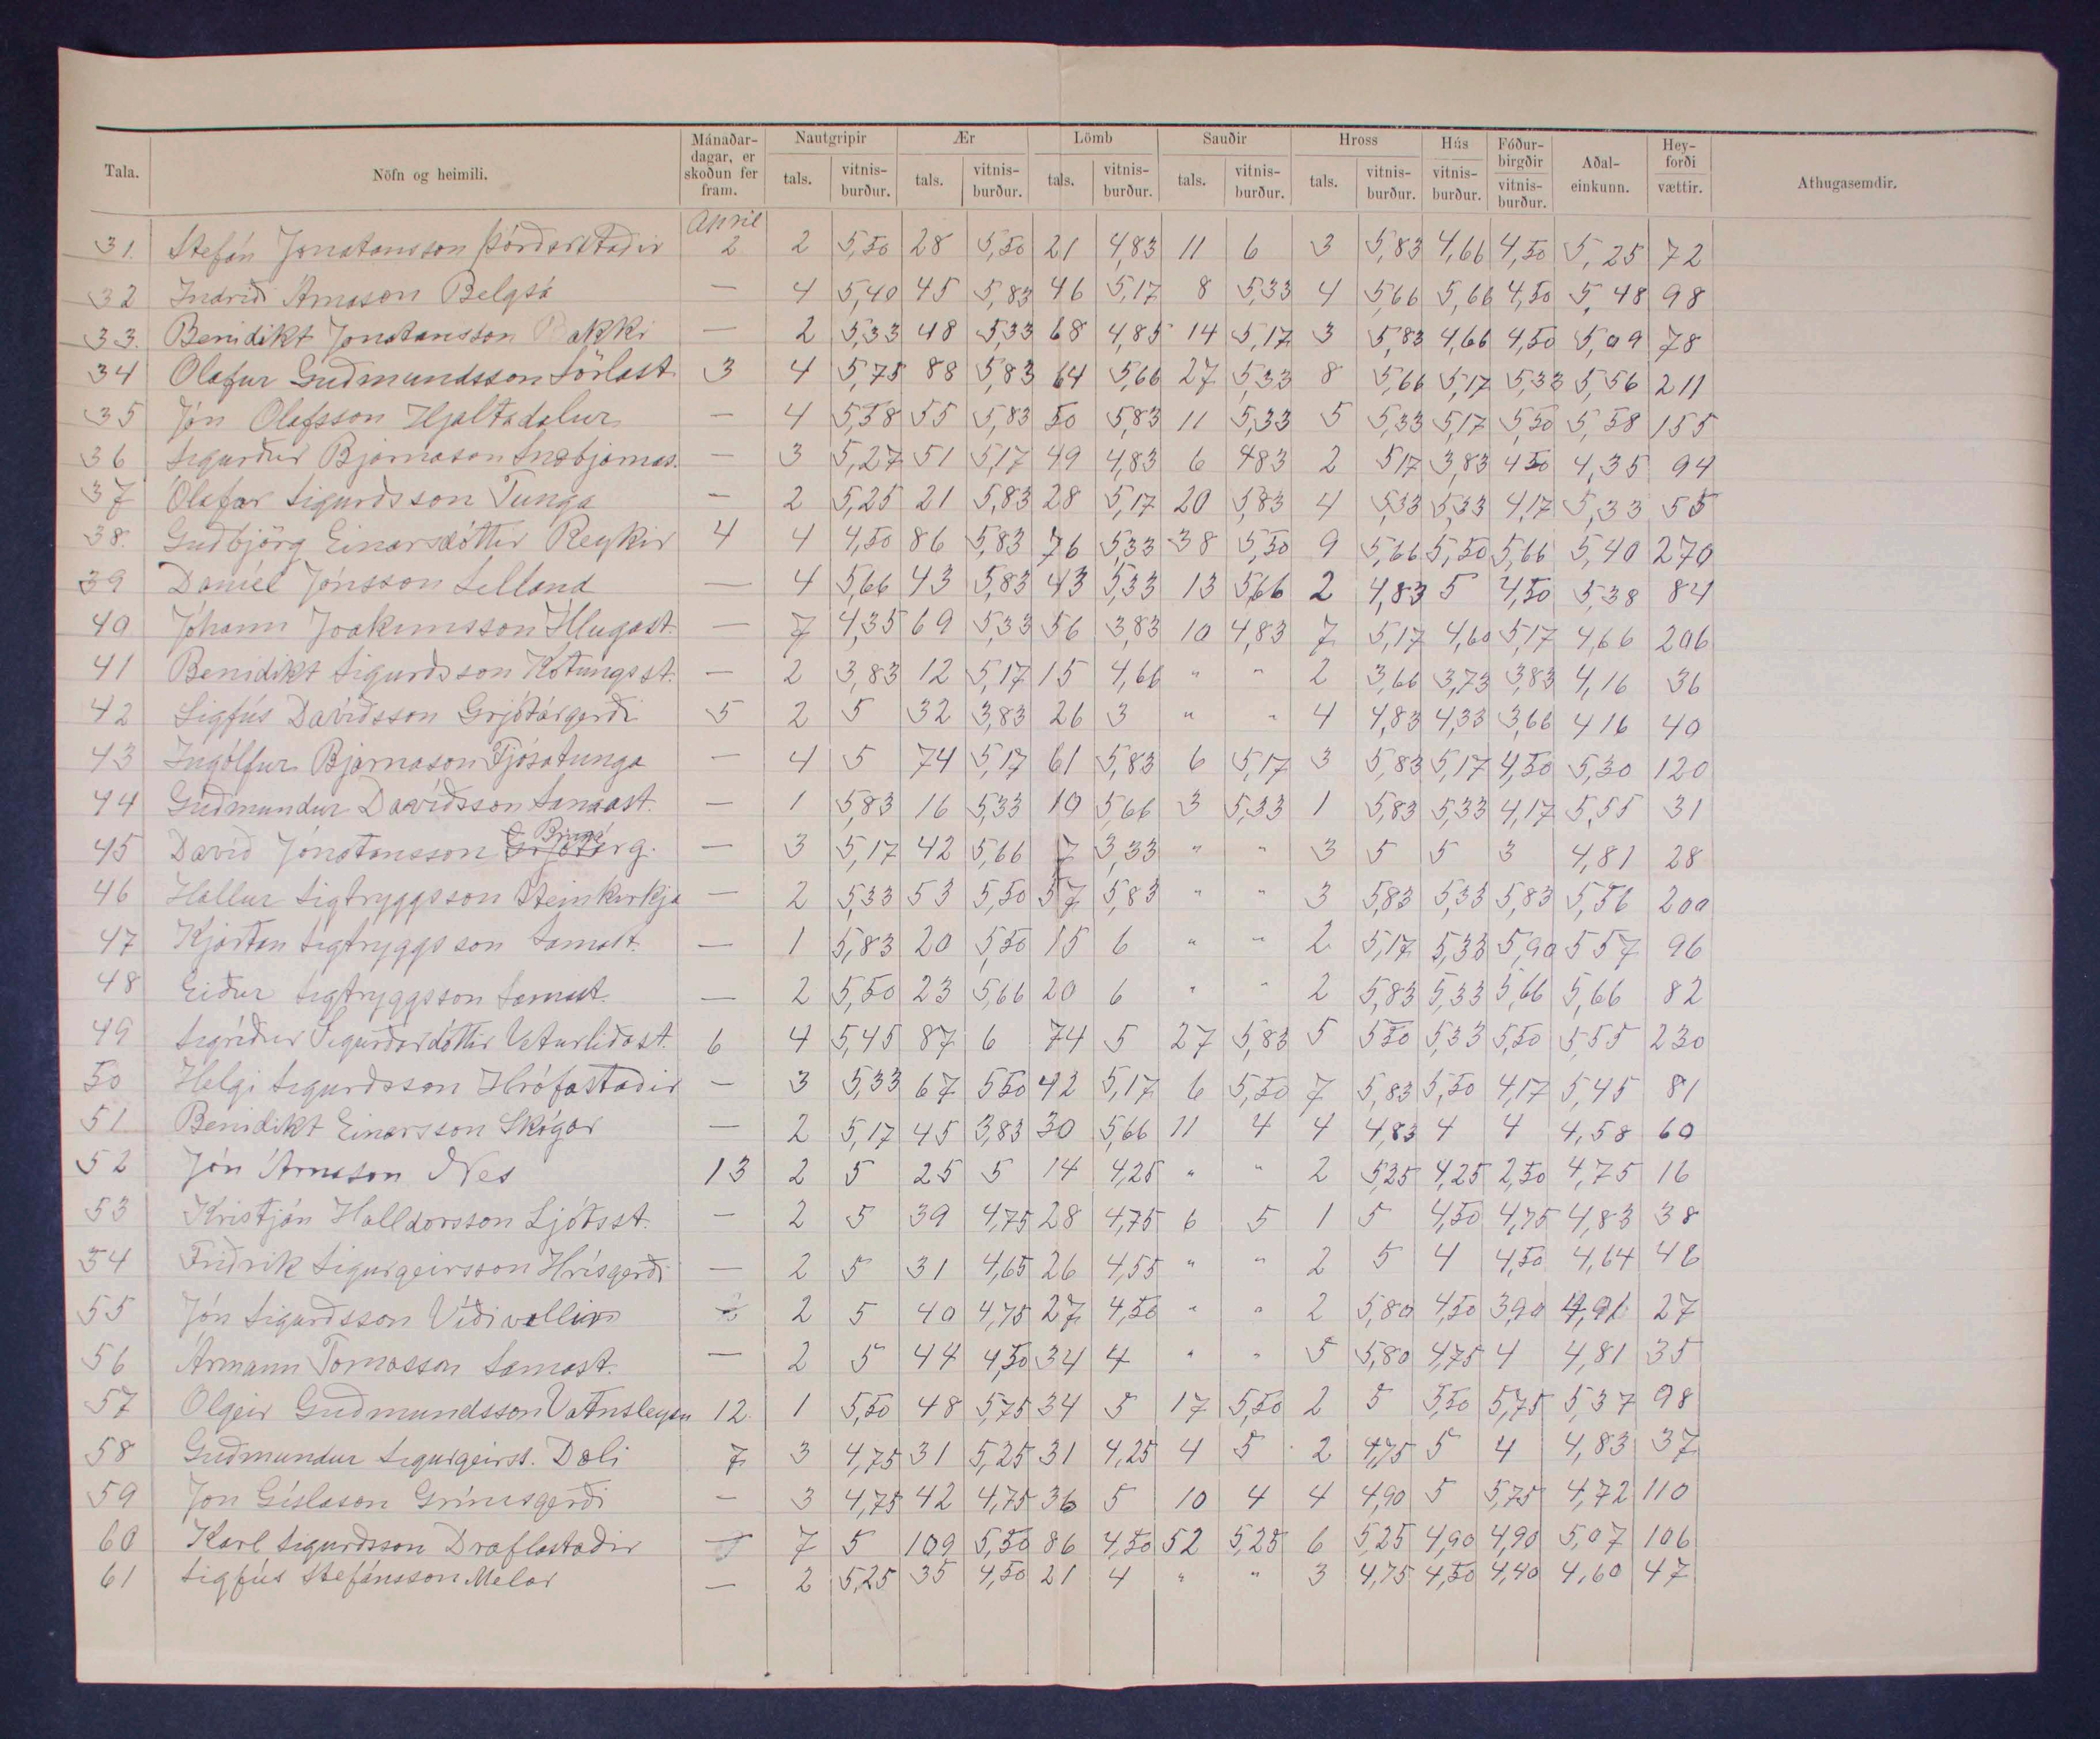 Tala. Nöfn og heimili. Mánaðar-dagar, er skoðun fer fram. Nautgripir Ær Lömb Sauðir Hross Hús Fóður-birgðir Aðal-einkunn. Hey-forði Athugasemdir.
tals. vitnis-burður. tals. vitnis-burður. tals. vitnis-burður. tals. vitnis-burður. tals. vitnis-burður. vitnis-burður. vitnis-burður. vættir.
April
31. Stefán Jonatansson Þórðarstaðir 2 2 5,50 28 5,50 21 4,83 11 6 3 5,83 4,66 4,50 5,25 72
32 Indriði Árnason Belgsá — 4 5,40 45 5,83 46 5,17 8 5,33 4 5,66 5,66 4,50 5,48 98
33. Benidikt Jonatansson Bakki — 2 5,33 48 5,33 68 4,85 14 5,17 3 5,83 4,66 4,50 5,09 78
34 Olafur Guðmundsson Sörlast. 3 4 5,75 88 5,83 64 5,66 27 5,33 8 5,66 5,17 5,33 5,56 211
35 Jón Olafsson Hjaltadalur — 4 5,58 55 5,83 50 5,83 11 5,33 5 5,33 5,17 5,50 5,58 155
36 Sigurður Bjarnason Snæbjarnas. — 3 5,27 51 5,17 49 4,83 6 4,83 2 5,17 3,83 4,50 4,35 94
37 Ólafur Sigurðsson Tunga — 2 5,25 21 5,83 28 5,17 20 5,83 4 5,33 5,33 4,17 5,33 55
38. Guðbjörg Einarsdóttir Reykir 4 4 4,50 86 5,83 76 5,33 38 5,50 9 5,66 5,50 5,66 5,40 270
39 Daníel Jónsson Selland — 4 5,66 43 5,83 43 5,33 13 5,66 2 4,83 5 4,50 5,38 84
40 Jóhann Joakimsson Illugast. — 7 4,35 69 5,33 56 3,83 10 4,83 7 5,17 4,60 5,17 4,66 206
41 Benidikt Sigurðsson Kotungsst. — 2 3,83 12 5,17 15 4,66 " " 2 3,66 3,73 3,83 4,16 36
42 Sigfús Davíðsson Grjótárgerði 5 2 5 32 3,83 26 3 " " 4 4,83 4,33 3,66 416 40
43 Ingólfur Bjarnason Fjósatunga — 4 5 74 5,17 61 5,83 6 5,17 3 5,83 5,17 4,50 5,30 120
44 Guðmundur Davíðsson Samast. — 1 5,83 16 5,33 10 5,66 3 5,33 1 5,83 5,33 4,17 5,55 31
45 Davíð Jónatansson — 3 5,17 42 5,66 7 3,33 " " 3 5 5 3 4,81 28
46 Hallur Sigtryggsson Steinkirkja — 2 5,33 53 5,50 57 5,83 " " 3 5,83 5,33 5,83 5,56 200
47 Kjartan Sigtryggsson Samast. — 1 5,83 20 5,50 15 6 " " 2 5,17 5,33 5,90 557 96
48 Eiður Sigtryggsson Samast. — 2 5,50 23 5,66 20 6 " " 2 5,83 5,33 5,66 5,66 82
49 Sigríður Sigurðardóttir Veturliðast. 6 4 5,45 87 6 74 5 27 5,83 5 550 5,33 5,50 5,55 230
50 Helgi Sigurðsson Hrófastaðir — 3 5,33 67 550 42 5,17 6 5,50 7 5,83 5,50 4,17 5,45 81
51 Benidikt Einarsson Skógar — 2 5,17 45 3,83 30 5,66 11 4 4 4,83 4 4 4,58 60
52 Jón Árnason Nes 13 2 5 25 5 14 4,25 " " 2 5,25 4,25 2,50 4,75 16
53 Kristján Halldorsson Ljótsst. — 2 5 39 4,75 28 4,75 6 5 1 5 4,50 4,75 4,83 38
54 Friðrik Sigurgeirsson Hrísgerði — 2 5 31 4,65 26 4,55 " " 2 5 4 4,50 4,64 48
55 Jón Sigurðsson Víðivellir 2 5 40 4,75 27 4,50 " " 2 5,80 4,50 3,90 27
56 Ármann Tomasson Samast. — 2 5 44 4,50 34 4 " " 5 5,80 4,75 4 4,81 35
57 Olgeir Guðmundsson Vatnsleysu 12. 1 5,50 48 5,75 34 5 17 5,50 2 5 5,50 5,75 5,37 98
58 Guðmundur Sigurgeirss. Dæli 7 3 4,75 31 5,25 31 4,25 4 5 2 4,75 5 4 4,83 37
59 Jon Gíslason Grímsgerði — 3 4,75 42 4,75 36 5 10 4 4 4,90 5 5,75 4,72 110
60 Karl Sigurðsson Draflastaðir 7 5 109 5,50 86 4,50 52 5,25 6 5,25 4,90 4,90 5,07 106
61 Sigfús Stefánsson Melar — 2 5,25 35 4,50 21 4 " " 3 4,75 4,50 4,40 4,60 47